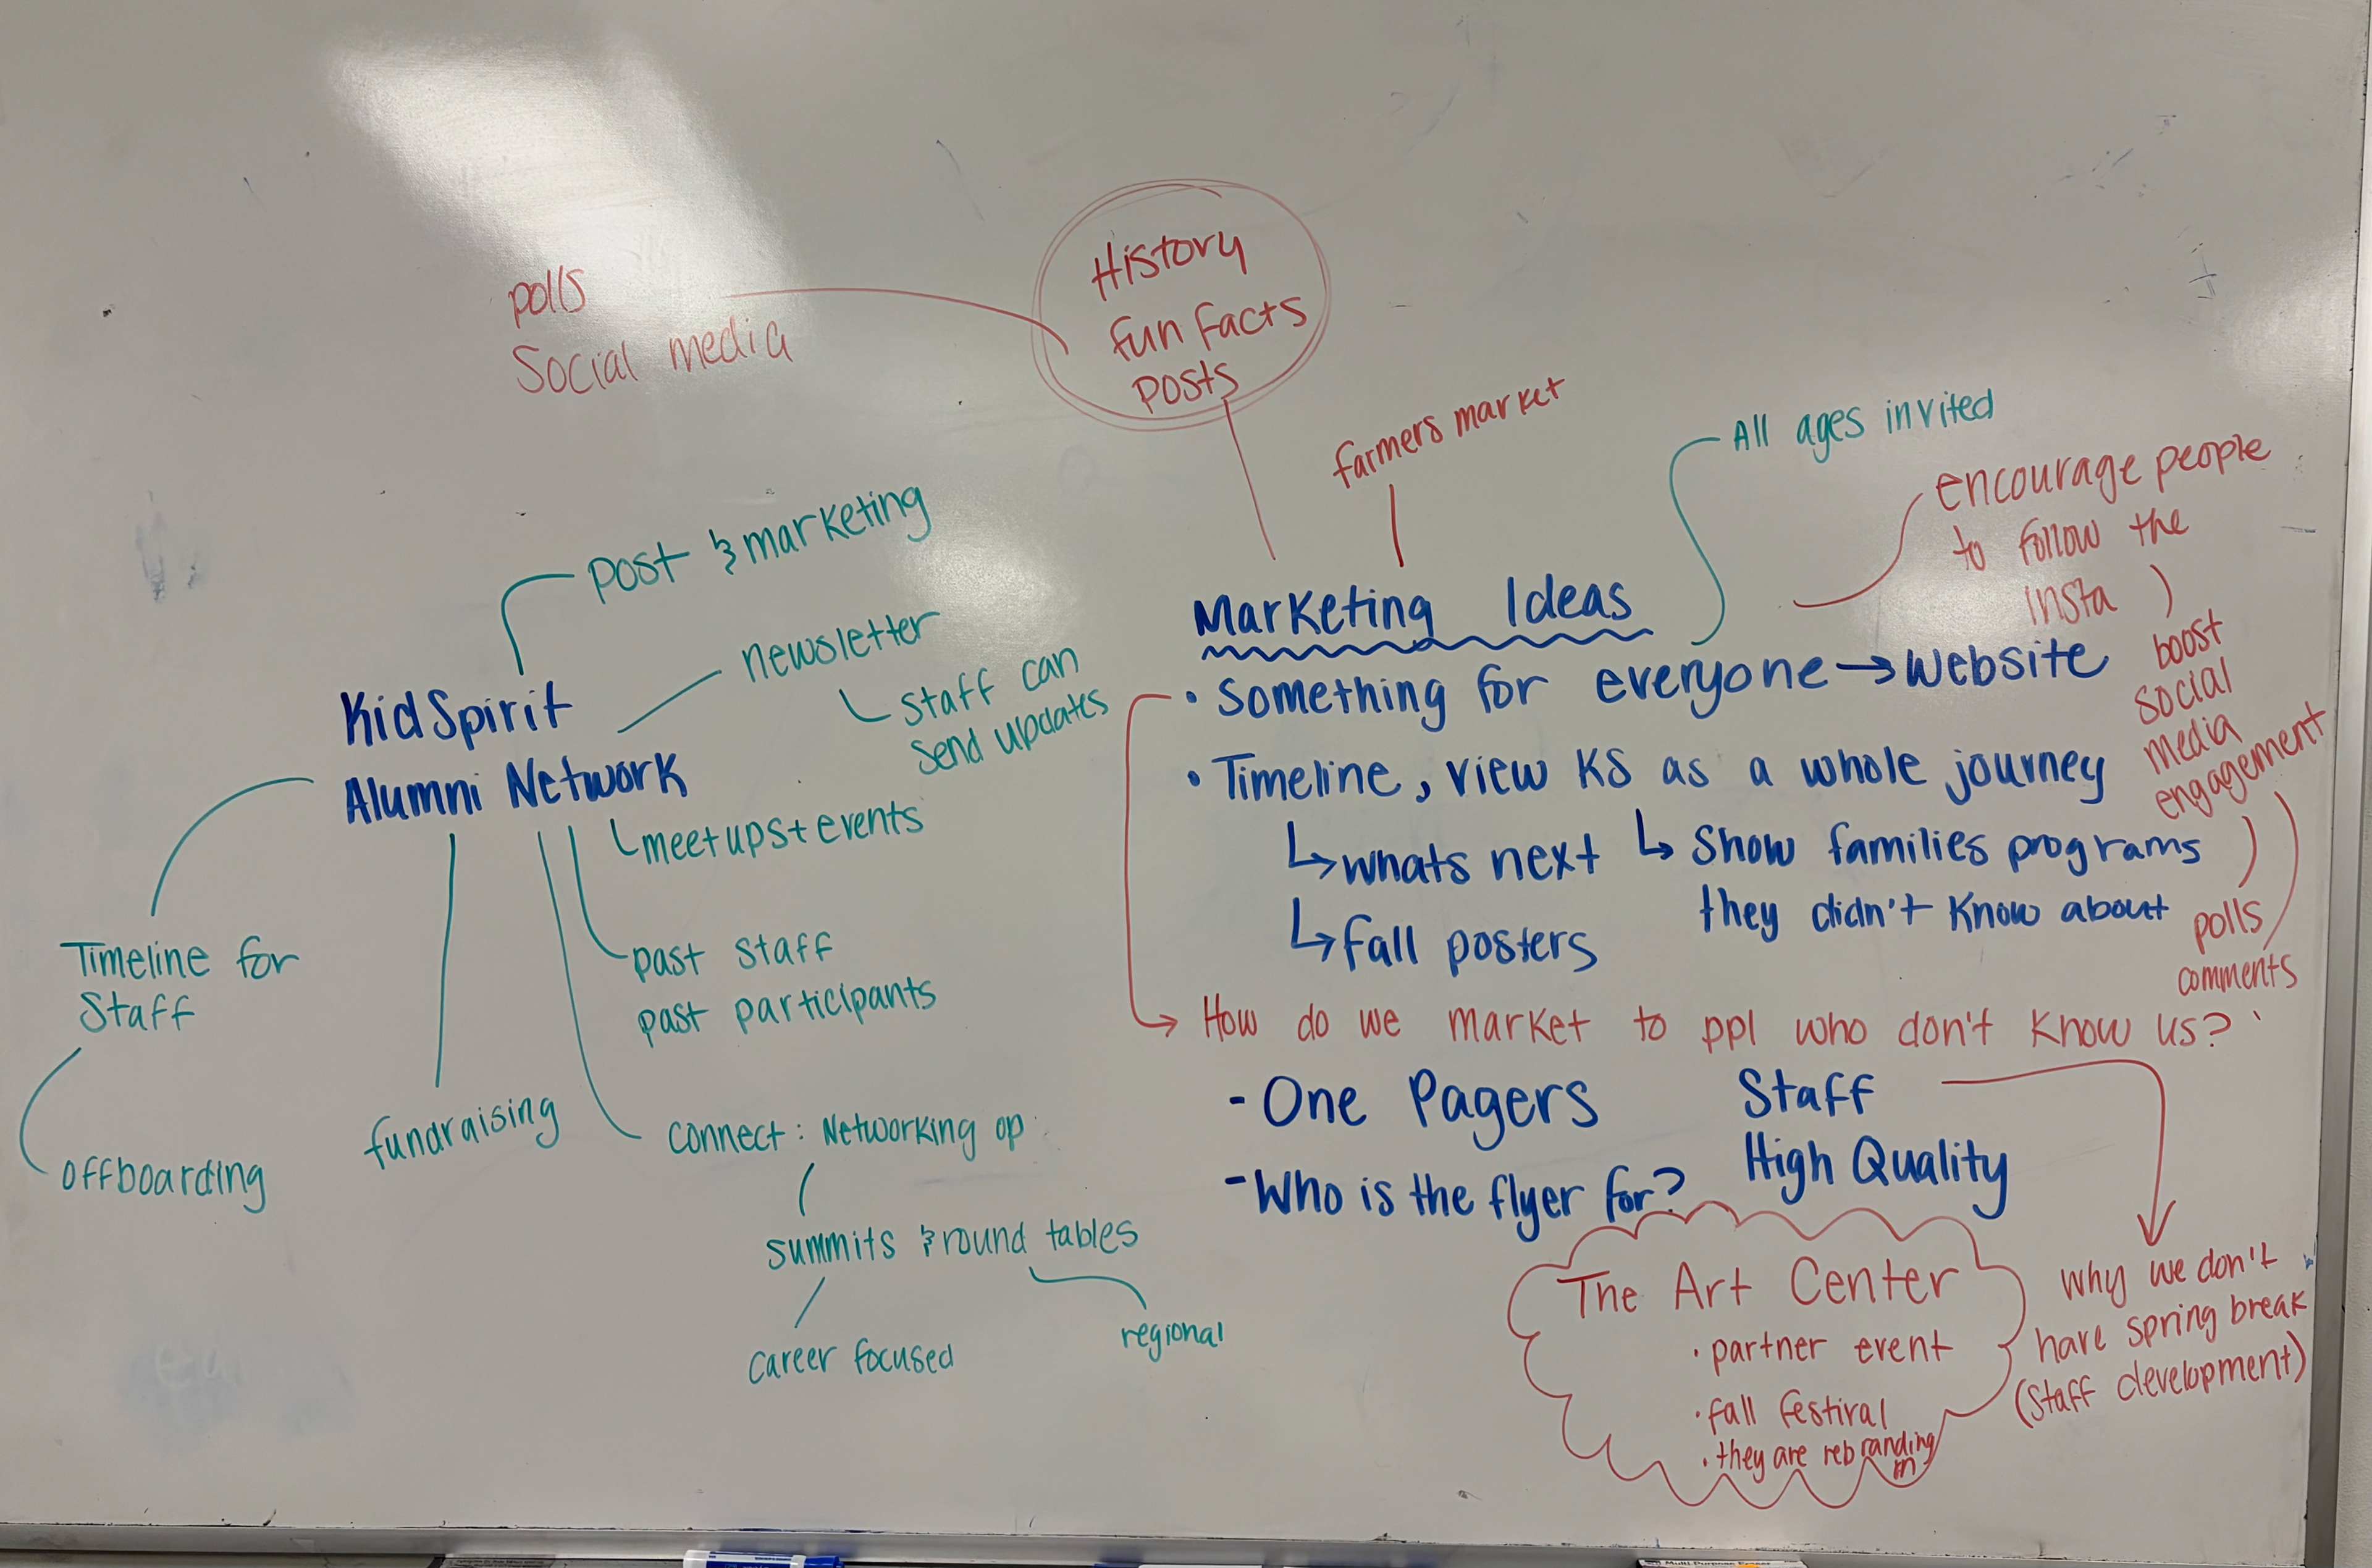 polls
Social media
History
fun facts
posts
farmers market
All ages invited
encourage people
to follow the
insta
boost
social
media
engagement
polls
comments
post & marketing
newsletter
staff can
send updates
KidSpirit
Alumni Network
meetups + events
past staff
past participants
Timeline for
Staff
offboarding
fundraising
connect: Networking op
summits & round tables
career focused
regional
Marketing Ideas
• Something for everyone → website
• Timeline, view KS as a whole journey
↳ whats next
↳ Show families programs
they didn't know about
↳ fall posters
How do we market to ppl who don't know us?
- One Pagers
- Who is the flyer for?
Staff
High Quality
The Art Center
• partner event
• fall festival
• they are rebranding
why we don't
have spring break
(staff development)